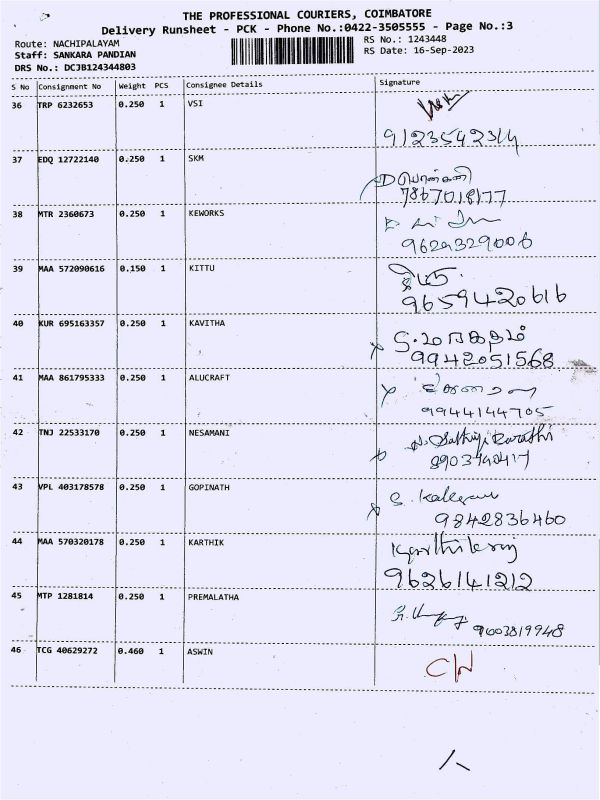 THE PROFESSIONAL COURIERS, COIMBATORE
Delivery Runsheet - PCK - Phone No.:0422-3505555 - Page No.:3
Route: NACHIPALAYAM
Staff: SANKARA PANDIAN
DRS No.: DCJB124344803
RS No.: 1243448
RS Date: 16-Sep-2023
S No Consignment No Weight PCS Consignee Details Signature
36 TRP 6232653 0.250 1 VSI
9123542314
37 EDQ 12722140 0.250 1 SKM
7867018177
38 MTR 2360673 0.250 1 KEWORKS
9629329006
39 MAA 572090616 0.150 1 KITTU
9659420616
40 KUR 695163357 0.250 1 KAVITHA
9942051568
41 MAA 861795333 0.250 1 ALUCRAFT
9944144705
42 TNJ 22533170 0.250 1 NESAMANI
43 VPL 403178578 0.250 1 GOPINATH
9842836460
44 MAA 570320178 0.250 1 KARTHIK
9626141212
45 MTP 1281814 0.250 1 PREMALATHA
9003819948
46 TCG 40629272 0.460 1 ASWIN